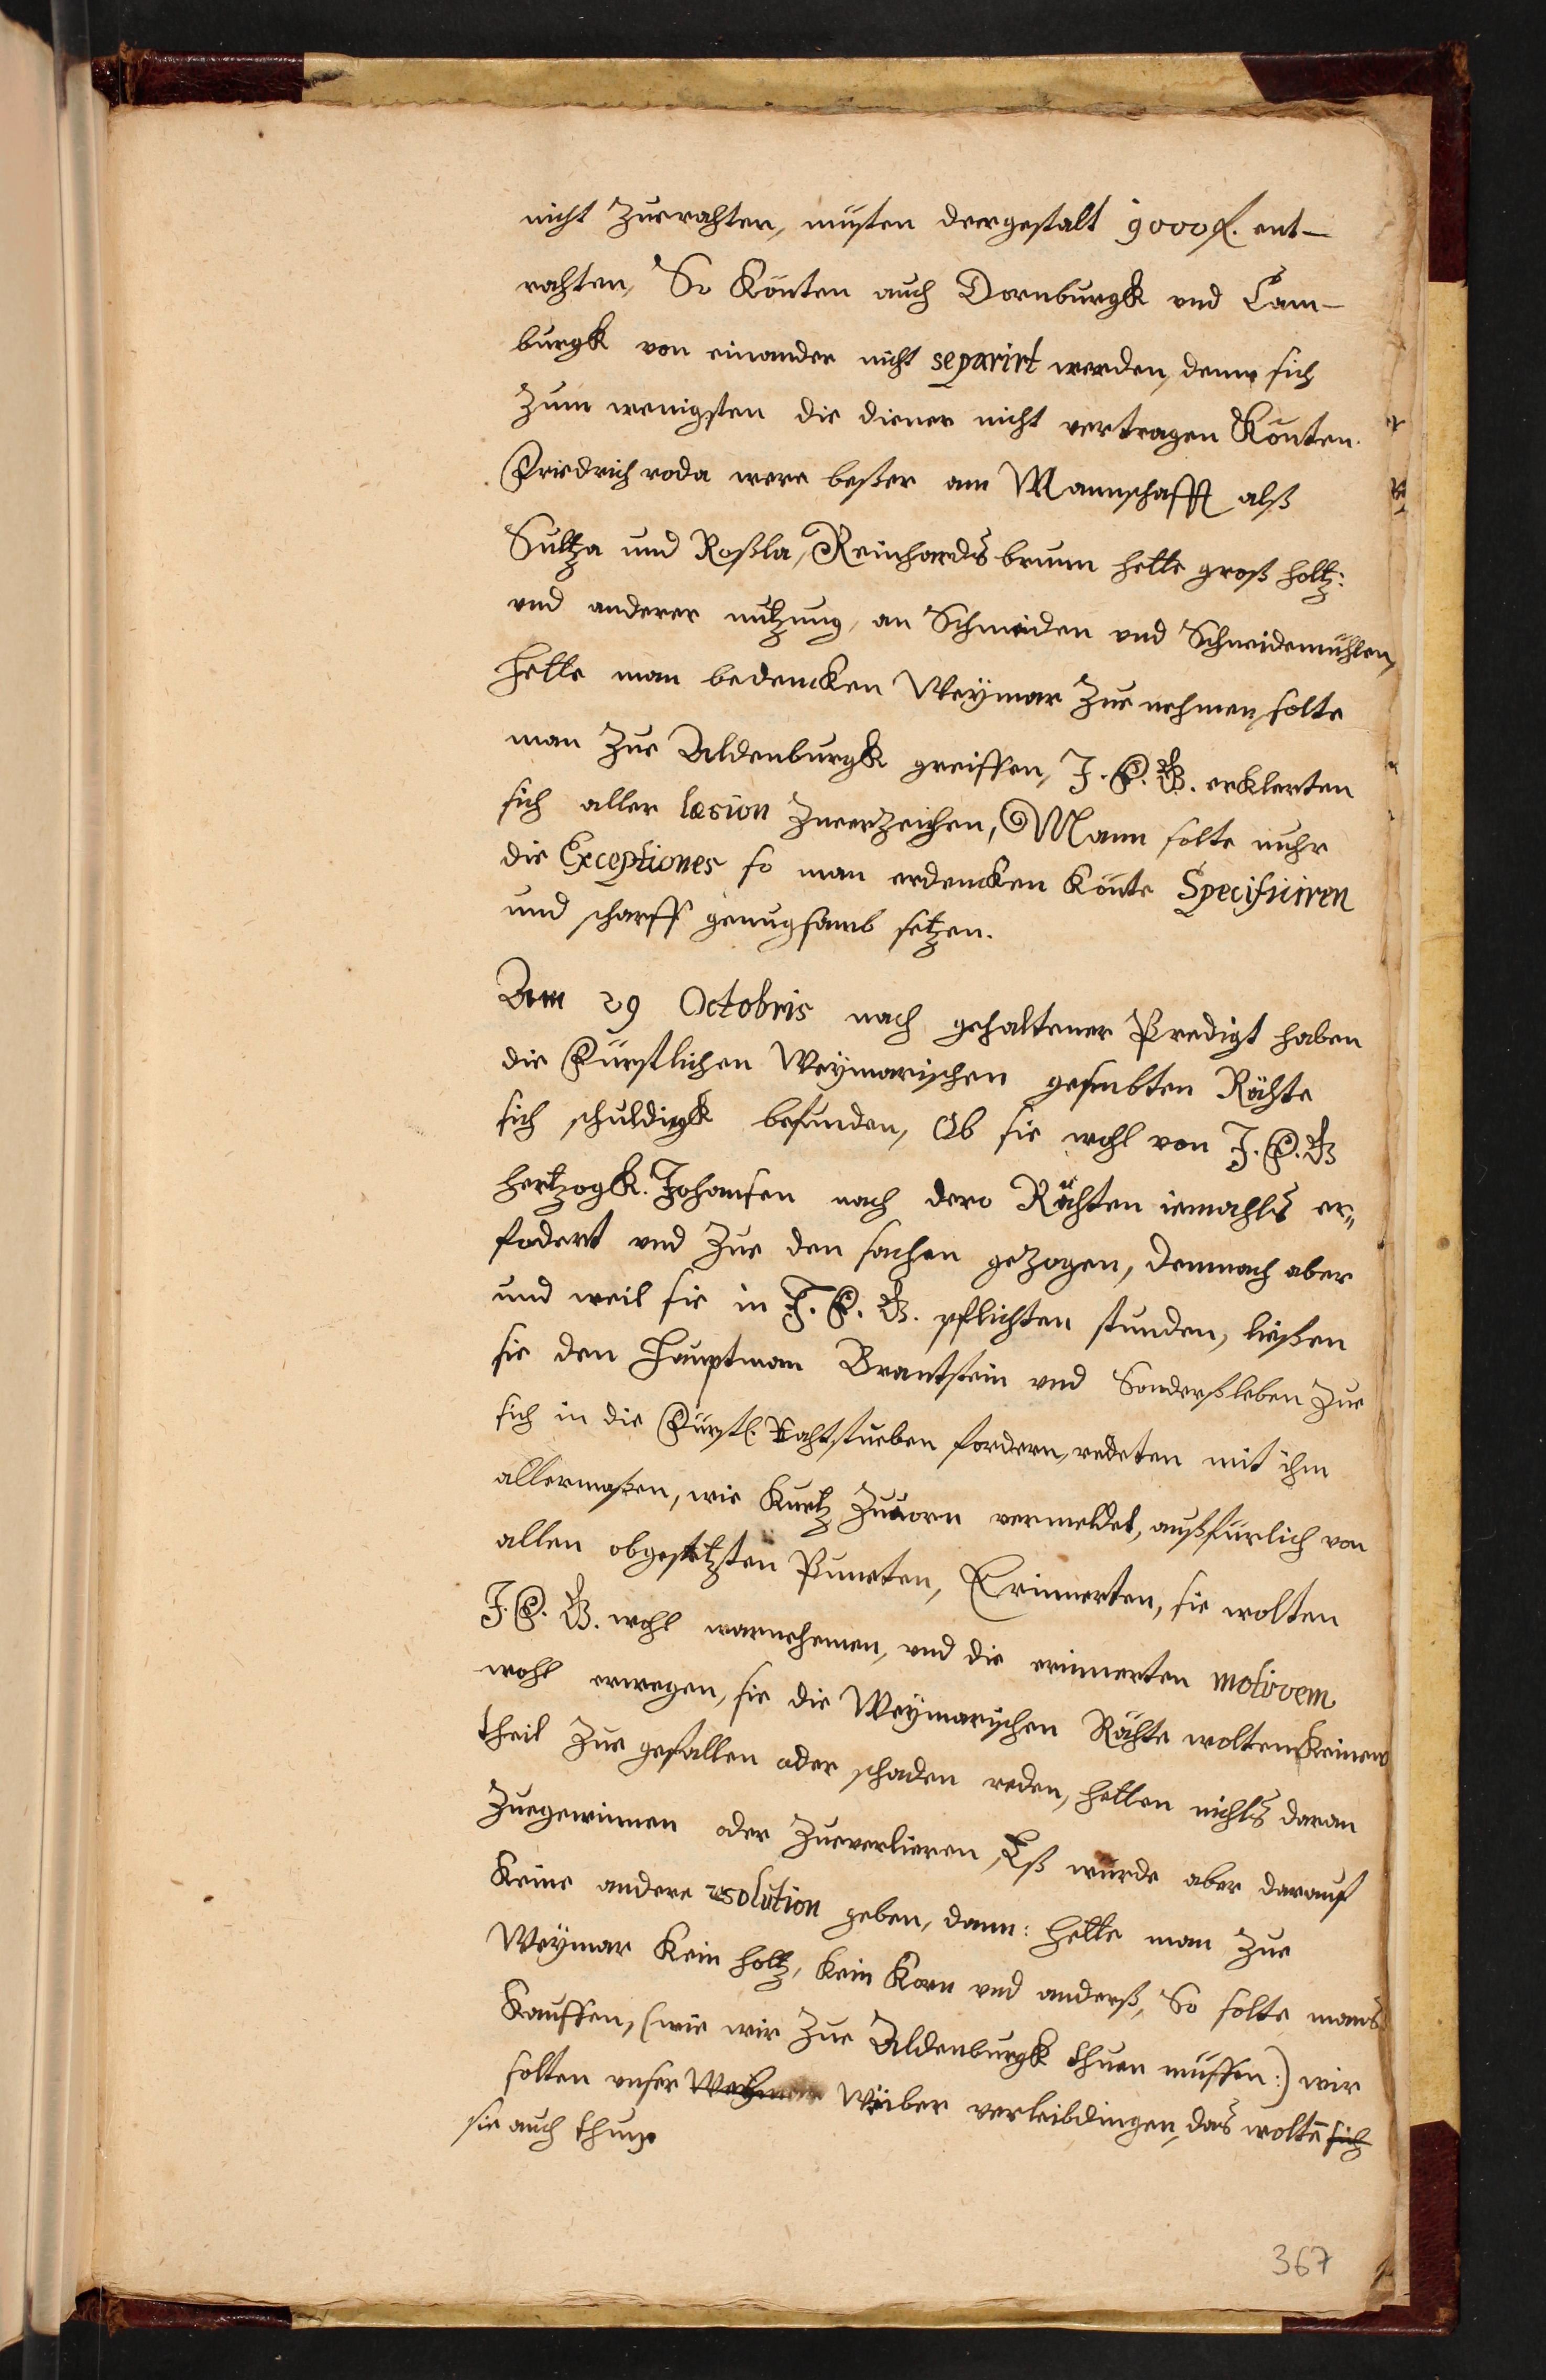 nicht Zurrahten, müsten dergestalt 9000 f. ent-
rahten, So Könten auch Dornburgk vnd Cam-
burgk von einander nicht separirt werden, denn sich
Zum wenigsten die diener nicht vertragen Könten.
Friedrichroda were beßer am Mannschafft alß
Sultza und Roßla, Reinhardsbrunn hette groß holtz:
vnd anderer nutzung, an Schmiden vnd Schneidemühlen,
hette man bedencken Weymar Zue nehmen, solte
man Zue Aldenburgk greiffen, J. F. G. erklerten
sich aller læsion Zuverzeihen, Mann solte nuhr
die Exceptiones so man erdencken Könte Specificiren
und scharff genugsamb setzen.
Am 29 Octobris nach gehaltener Predigt haben
die Fürstlichen Weymarischen gesambten Rähte
sich schuldigk befunden, Ob sie wohl von J. F. G
hertzogk. Johansen nach dero Rähten iemahls er„
fodert vnd Zue den sachen gezogen, demnach aber
und weil sie in J. F. G. pflichten stunden, ließen
sie den Hauptman Brantstein vnd Sonderßleben Zue
sich in die Fürstl. Rahtstueben fordern, redeten mit ihm
allermaßen, wie Kurtz Zuuorn vermeldet, außfürlich von
allen obgesetzten Puncten, Erinnerten, sie wolten
J. F. G. wohl warnehemen, vnd die erinnerten motiven
wohl erwegen, sie die Weymarischen Rähte wolten Keinem
theil Zue gefallen oder schaden reden, hetten nichts daran
Zuegewinnen oder Zueverlieren, Eß würde aber darauf
Keine andere resolution geben, dann: hette man Zue
Weymar Kein holtz, kein Korn vnd anderß, So solte mans
Kauffen, (wie wir Zue Aldenburgk thuen müssen:) wir
solten vnser Weiber verleibdingen, das wolten sich
sie auch thun.
367